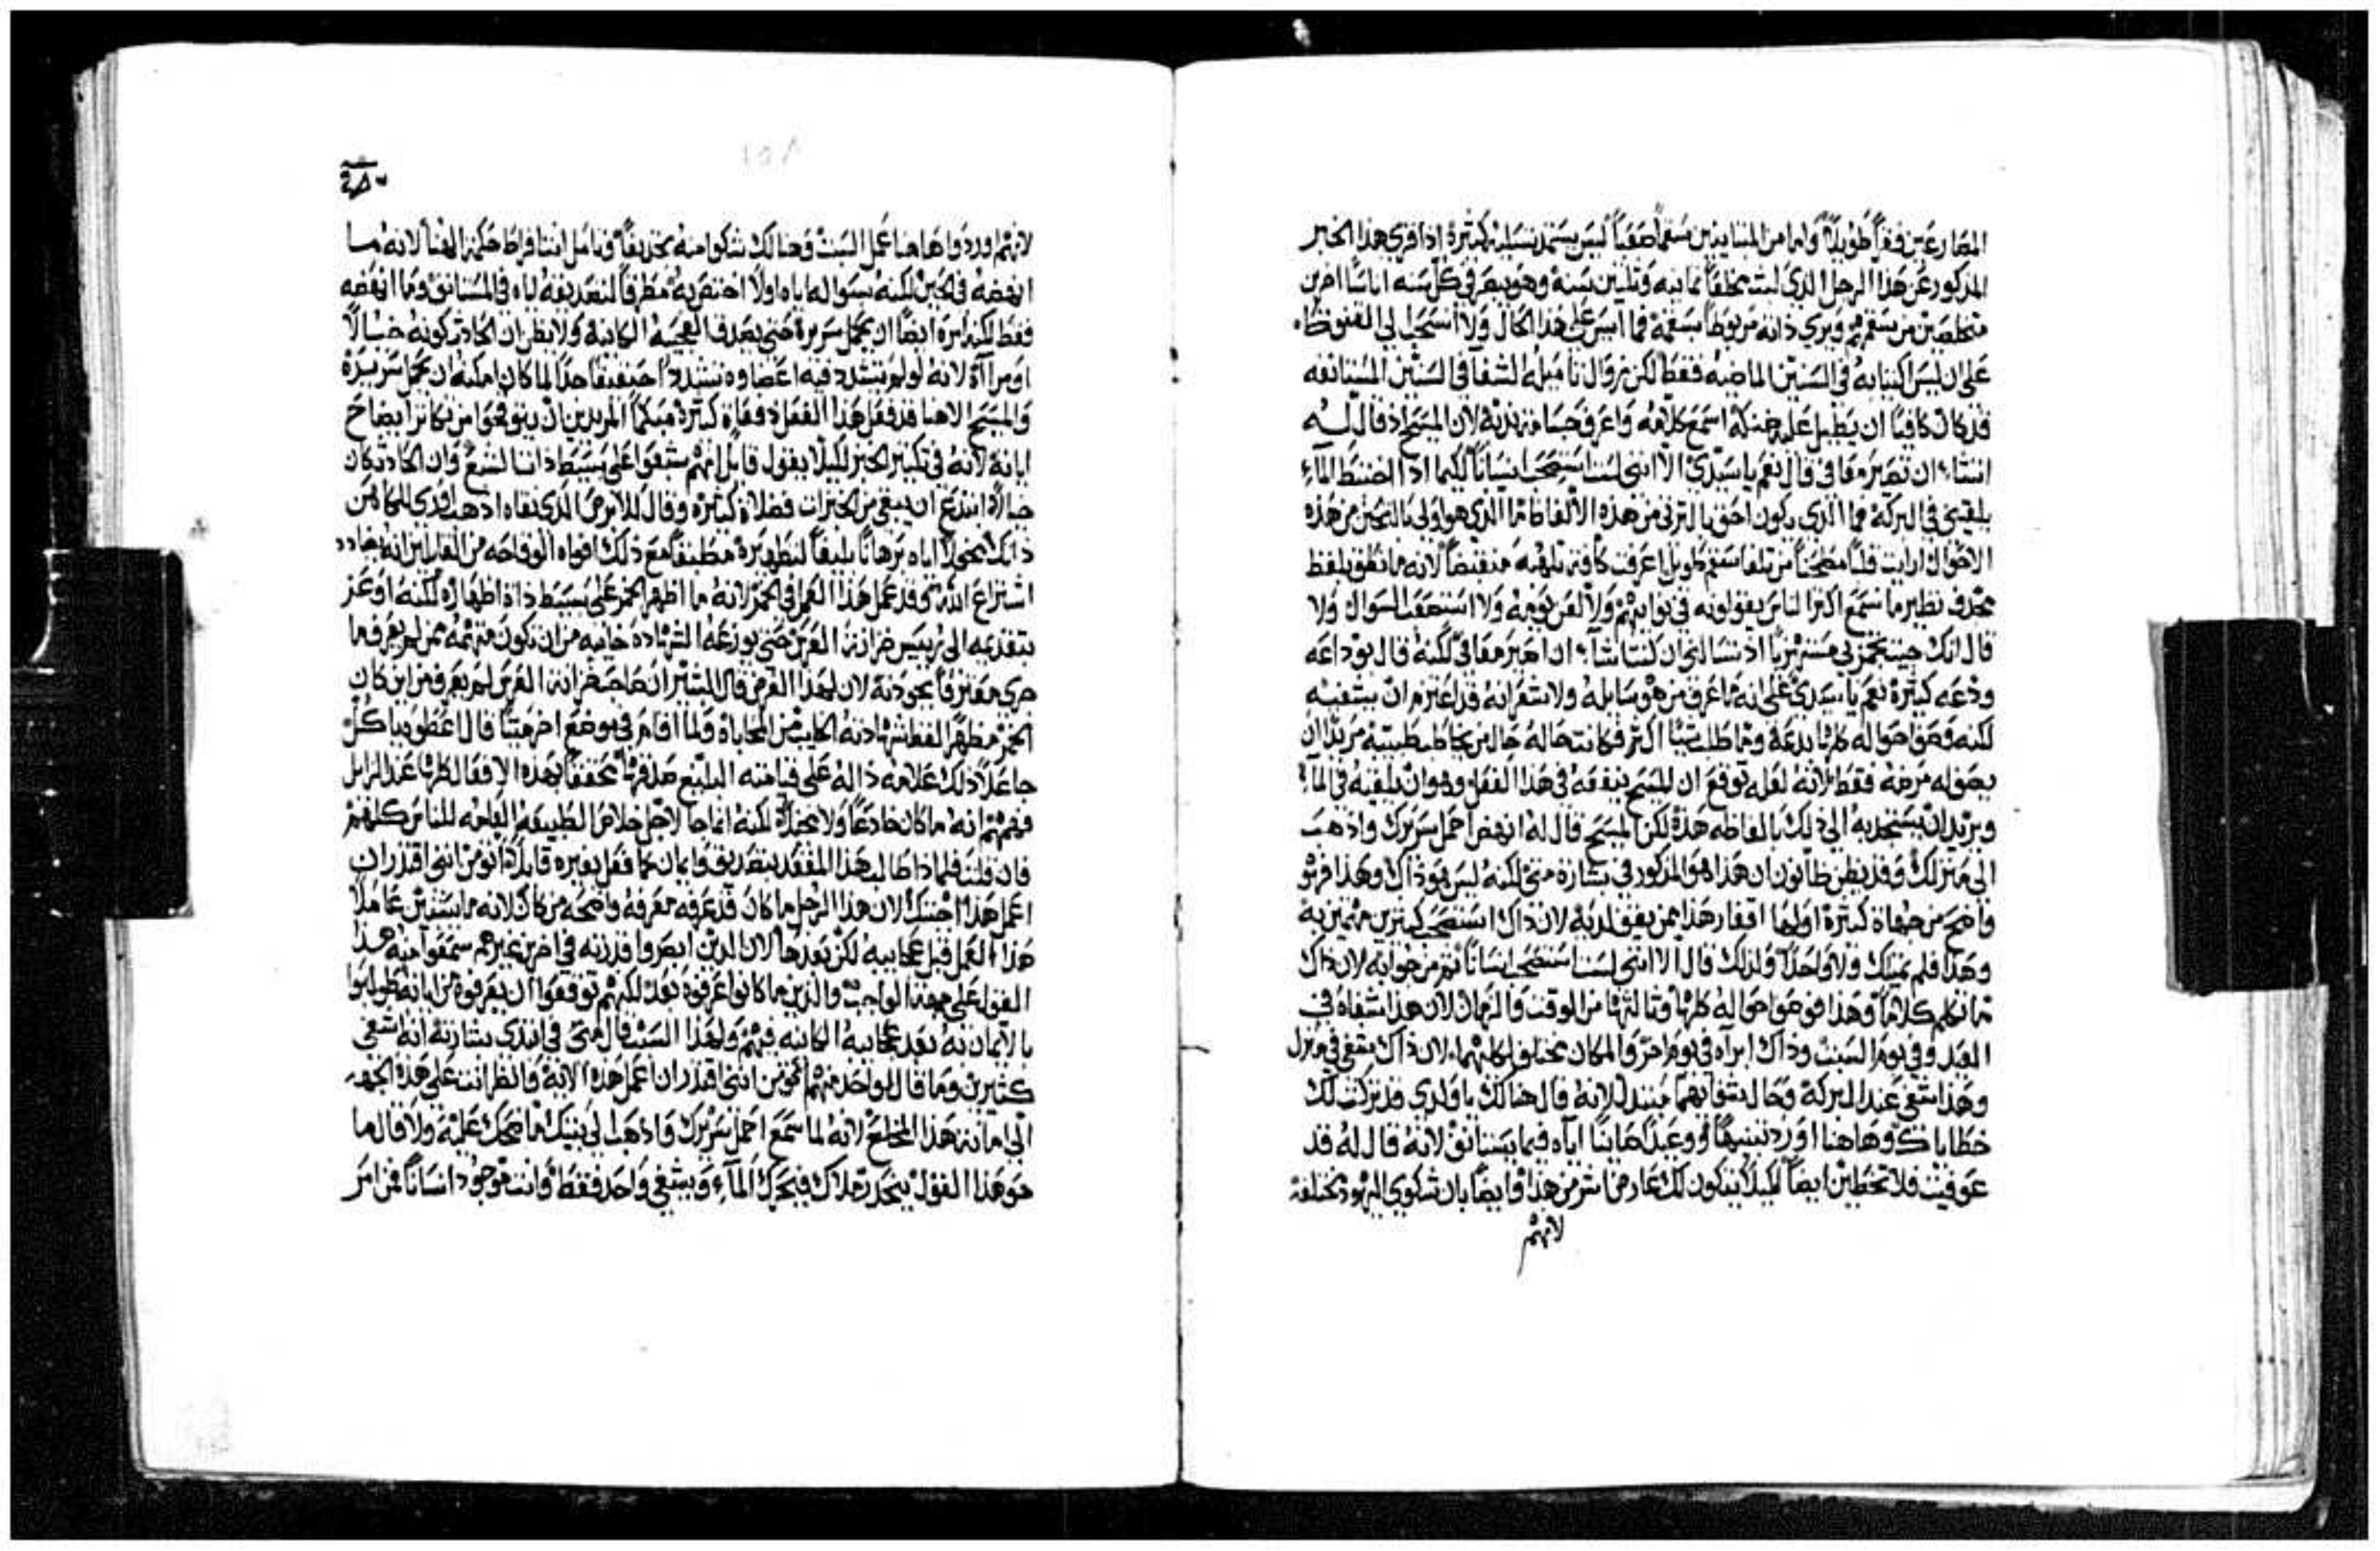 المصارعين فقراً طويلاً واما من المنابذين سقماً صعباً ليس يستمد تسلية كثيرة اذا قري هذا الخبر
المذكور عن هذا الرجل الذي لبث مخلعاً ثمانيه وثلثين سنة وهو يبصر في كل سنه اناساً اخرين
متخلصين من سقمهم ويري ذاته مربوطاً بسقمه فما اسرع هذا الحال ولا استحال الي القنوط
علي ان ليس اكتيابه في السنين الماضيه فقط لكن زوال تاميله الشفا في السنين المستانفه
قد كان كافياً ان يطيل عليه ضنكه اسمع كلامه واعرف جسامة لان المسيح اذ قال له
اتشاء ان تصير معافي قال نعم يا سيدي الا انني لست استصحب انساناً لكيما اذا اختبط الماء
يلقيني في البركة فما الذي يكون احق بالترثي من هذه الالفاظ ما الذي هو اولي بالتحنن من هذه
الاحوال ارايت قلباً من تلقا سقم طويل اعرفت كافة منقبضاً لانه ما نطق بلفظ
تجديف نظير ما نسمع اكثر الناس يقولونه في نوايبهم ولا لعن يومه ولا استصعب السوال ولا
قال انك جيت تهزي بي اذ تسالني ان كنت اشاء ان اصير معافي لكنه قال بوداعه
ودعه كثيرة نعم يا سيدي علي انه ما عرف من هو سايله ولا شعر انه قد اعتزم ان يشفيه
لكنه قص احواله كلها بدعة وما طلب شياً اكثر فكانت حاله حال من يخاطب طبيبه مريداً ان
يصف له مرضه فقط لانه لعله توقع ان المسيح ينفعه في هذا الفعل وهو ان يلقيه في الماء
ويريد ان يستجذبه الي ذلك بالفاظه هذه لكن المسيح قال له انهض احمل سريرك واذهب
الي منزلك وقد يظن ظانون ان هذا هو المذكور في بشارة متي لكنه ليس هو ذاك وهذا فهو
واضح من جهاة كثيرة اولها افقار هذا ممن يعتني به لان ذاك استصحب كثيرين مهتمين به
وهذا فلم يمتلك ولا واحداً ولذلك قال الا انني لست استصحب انساناً ثم من جوابه لان ذاك
ما تكلم كلاماً وهذا فوضح احواله كلها وثالثها من الوقت والزمان لان هذا شفاه في
العيد وفي يوم السبت وذاك ابراه في يوم اخر والمكان مختلف لكليهما لان ذاك شفي في منزل
وهذا شفي عند البركة وحال شفايهما مبتدل لانه قال هنالك يا ولدي قد تركت لك
خطاياك وهاهنا اورد تنبيهاً ووعيداً هايناً اياه فيما يستانف لانه قال له قد
عوفيت فلا تخطين ايضاً لكيلا يتكون لك عارض اشر من هذا وايضاً بان شكوي اليهود مختلفه
لانهم
لانهم اوردوا هاهنا عمل السبت وهنالك شكوا منه تجديفاً وتامل انت افراط حكمة الهنا لانه ما
انهضه في الحين لكنه بسواله اياه اولاً اختص به مطرقاً لتصديقه اياه في المستانف وما انهضه
فقط لكنه امره ايضاً ان يحمل سريره حتي يصدق العجيبه الكاينه ولا يظن ان الحادث كونه خيالاً
او مرآاة لانه لو لم تشدد فيه اعضاوه تشديداً حقيقياً جداً لما كان امكنه ان يحمل سريره
والمسيح الاهنا قد فعل هذا الفعل دفعاة كثيرة مبكماً المريدين ان يتوقحوا من تكاثر ايضاح
اياته لانه في تكثير الخبز لكيلا يقول قايل انهم شبعوا علي بسيط ذات الشبع وان الحادث كان
خيالاً ابتدع ان يبقي من الخبزات فضلاة كثيره وقال للابرص الذي نقاه اذهب اري للكاهن
ذاتك مخولاً اياه برهاناً بليغاً لتطهيره مطبقاً مع ذلك افواه الوقاحه من القايلين انه يضادد
اشتراع الله وقد عمل هذا العمل في الخمر لانه ما اظهر الخمر علي بسيط ذاة اظهاره لكنه اوعز
بتقديمه الي ريس خزانة العرس حتي يودعه الشهاده خاليه من ان تكون متهمه ممن لم يعرف ما
جري معترفاً بجودته لان لهذا الغرض قال البشير ان صاحب خزانة العرس لم يعرف من اين كان
الخمر مظهراً لفظ شهادته الخاليه من المحاباة ولما اقام في موضع اخر ميتاً قال اعطوه ياكل
جاعلاً ذلك علامه داله علي قيامته البليغ صدقها محققاً بهذه الافعال كلها عند الزايل
فهمهم انه ما كان خادعاً ولا مخيلاً لكنه انما جا لاجل خلاص الطبيعة العامه للناس كلهم
فان قلت فلماذا طالب هذا المقعد بتصديق وايمان كما فعل بغيره قايلاً اتومن انني اقدر ان
اعمل هذا اجبتك لان هذا الرجل ما كان قد عرفه معرفة واضحه من كان لانه ما استبين عاملاً
هذا العمل قبل عجايبه لكن بعدها لان الذين ابصروا قدرته في اخرين غيرهم سمعوا منه هذا
القول علي جهة الواجب والذين ما كانوا عرفوه بعد لكنهم توقعوا ان يعرفوه من اياته طولبوا
بالايمان به بعد عجايبه الكاينه فيهم ولهذا السبب قال متي في ابتدي بشارته انه شفي
كثيرين وما قال لواحد منهم اتومن انني اقدر ان اعمل هذه الاية وانظر انت علي هذه الجهه
الي امانة هذا المخلع لانه لما سمع احمل سريرك واذهب الي بيتك ما ضحك عليه ولا قال ما
هو هذا القول ينحدر ملاك فيحرك الماء ويشفي واحد فقط وانت موجود انساناً فمن امر